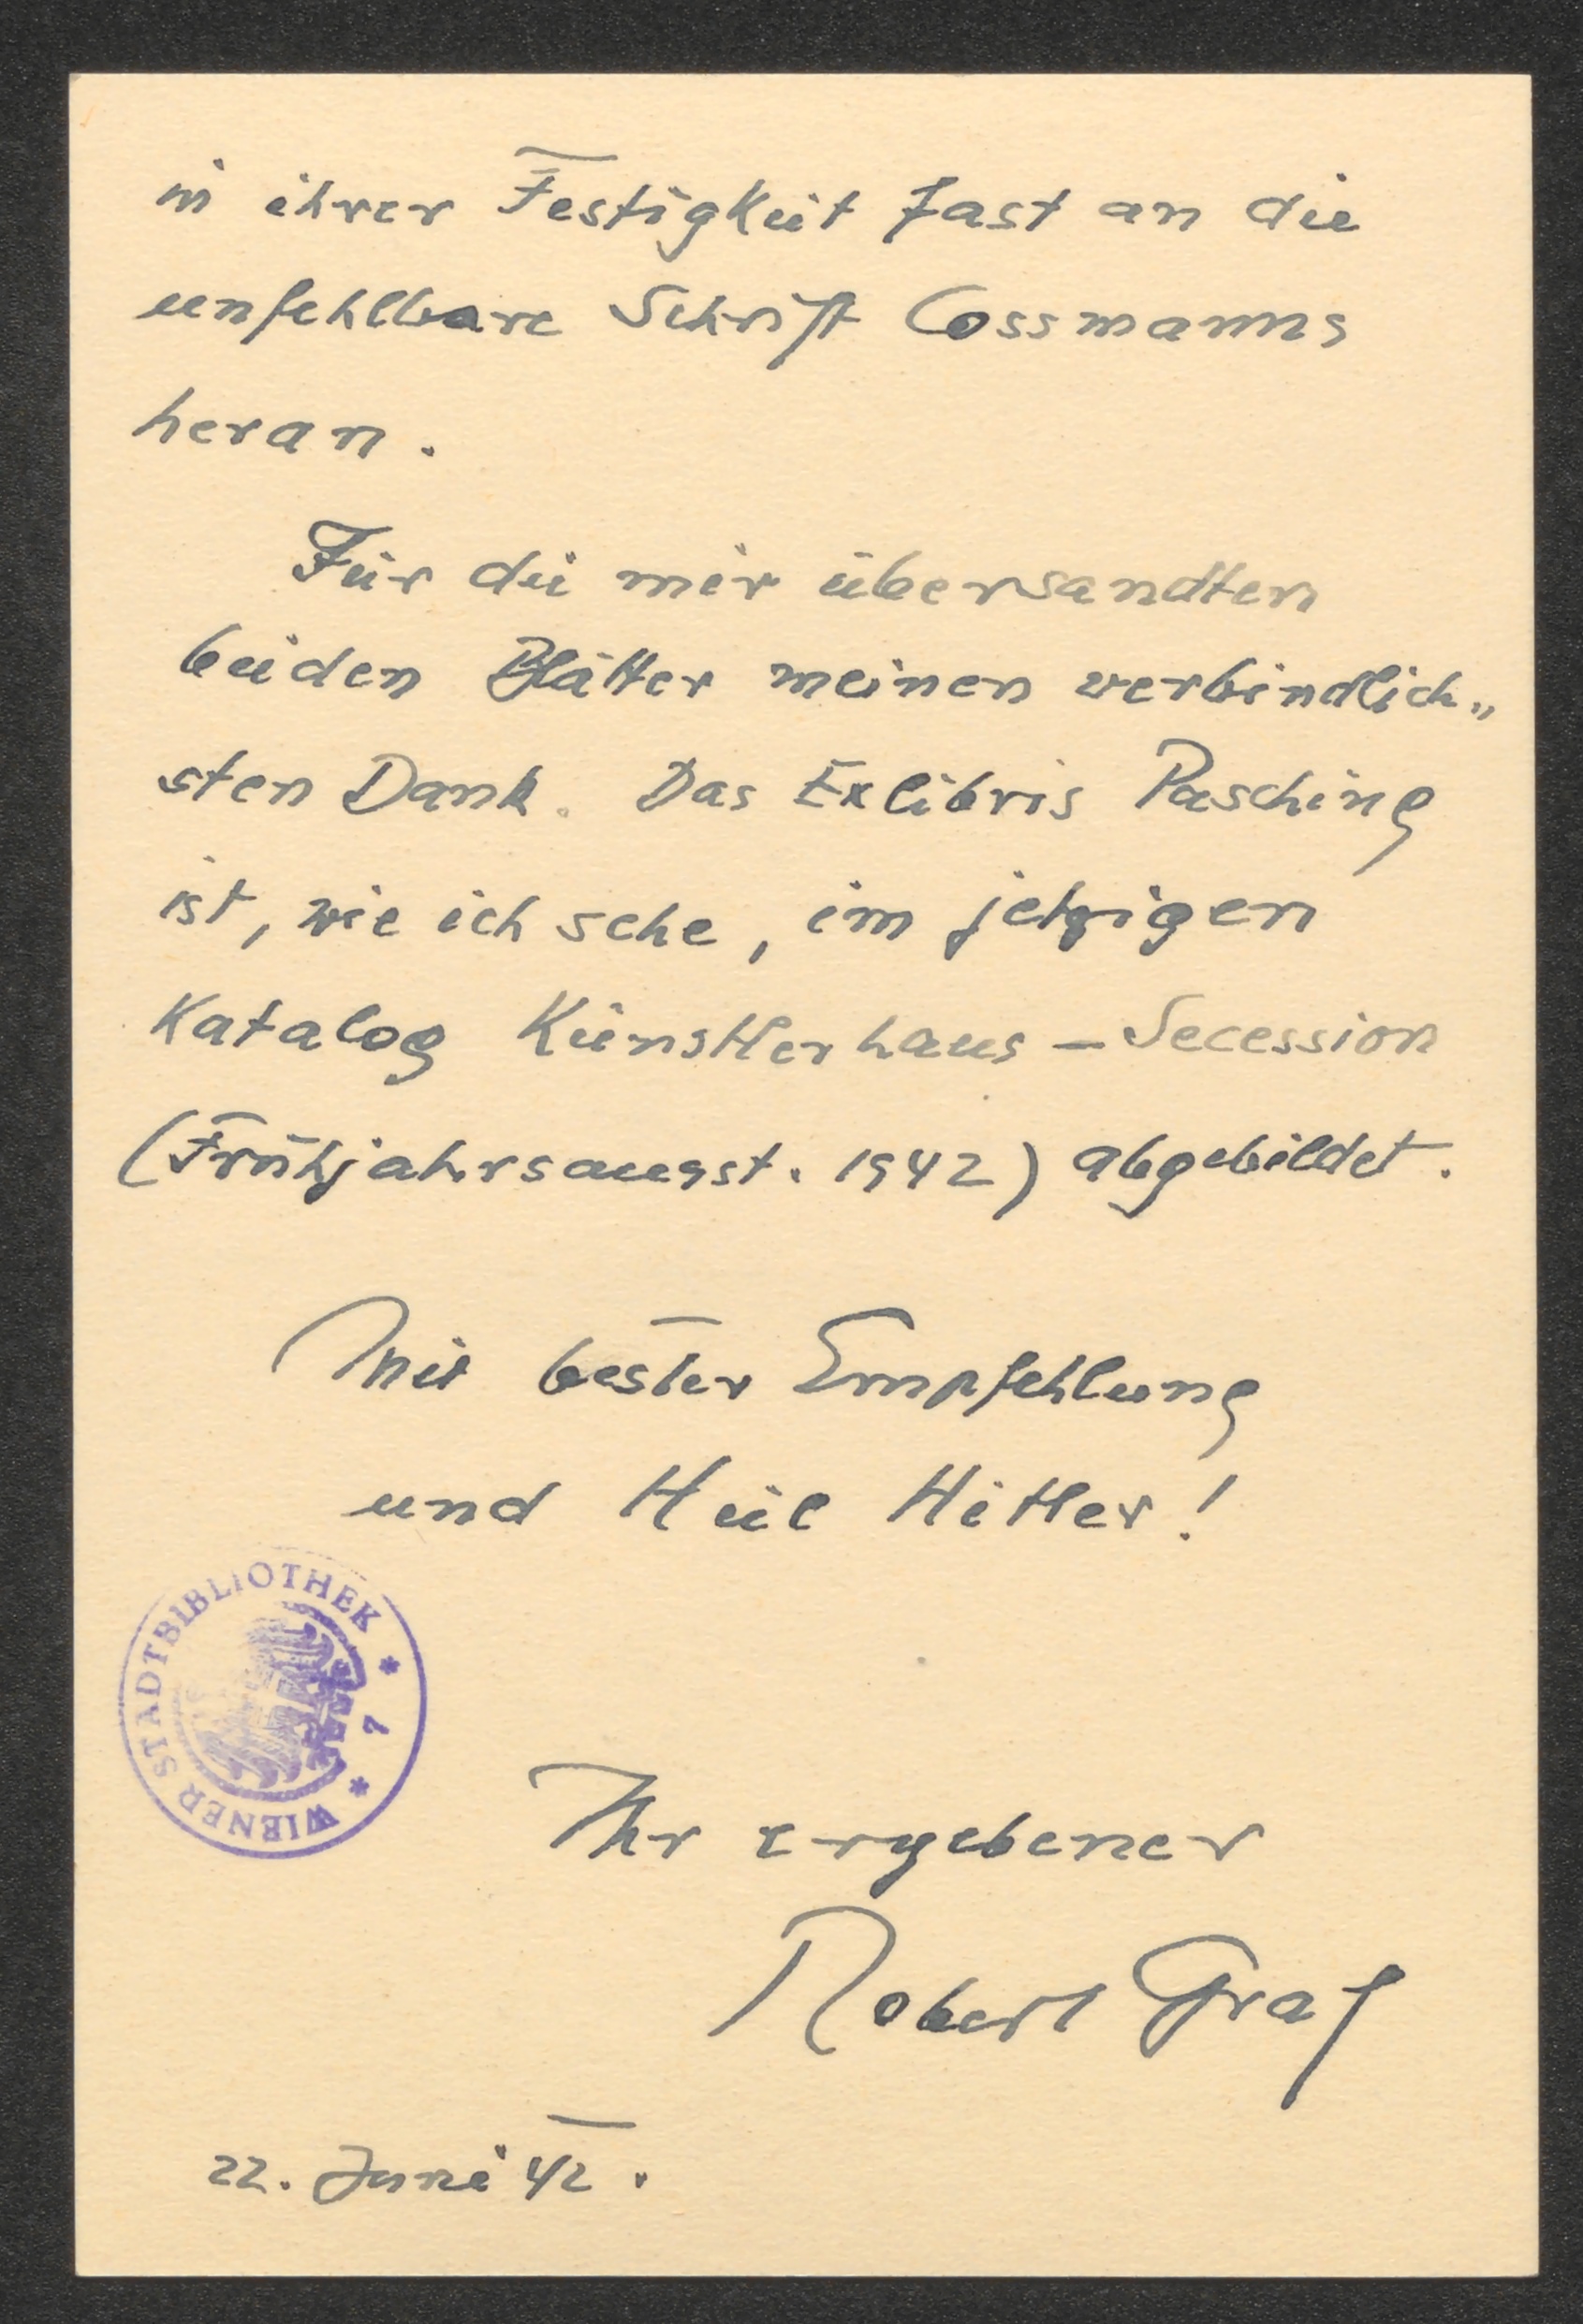 in ihrer Festigkeit fast an die
unfehlbare Schrift Cossmanns
heran.
Für die mir übersandten
beiden Blätter meinen verbindlich„
sten Dank. Das Exlibris Pasching
ist, wie ich sehe, im jetzigen
Katalog Künstlerhaus – Secession
(Frühjahrsausst. 1942) abgebildet.
Mit bester Empfehlung
und Heil Hitler!
WIENER STADTBIBLIOTHEK * 7 *
Ihr ergebener
Robert Graf
22. Juni 42.